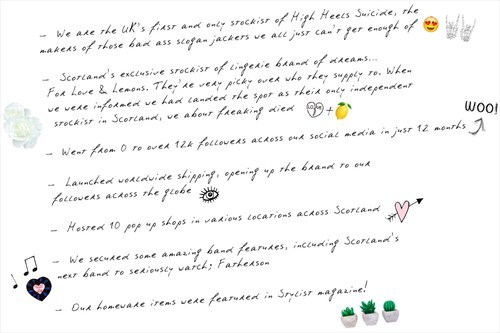 - We are the UK's first and only stockist of High Heels Suicide, the
makers of those bad ass slogan jackets we all just can't get enough of
- Scotland's exclusive stockist of lingerie brand of dreams...
For Love & Lemons. They're very picky over who they supply to. When
we were informed we had landed the spot as their only independent
stockist in Scotland, we about freaking died
LOVE + 
WOO!
- Went from 0 to over 12k followers across our social media in just 12 months
- Launched worldwide shipping, opening up the brand to our
followers across the globe
- Hosted 10 pop up shops in various locations across Scotland
- We secured some amazing band features, including Scotland's
next band to seriously watch; Fatherson
- Our homeware items were featured in Stylist magazine!